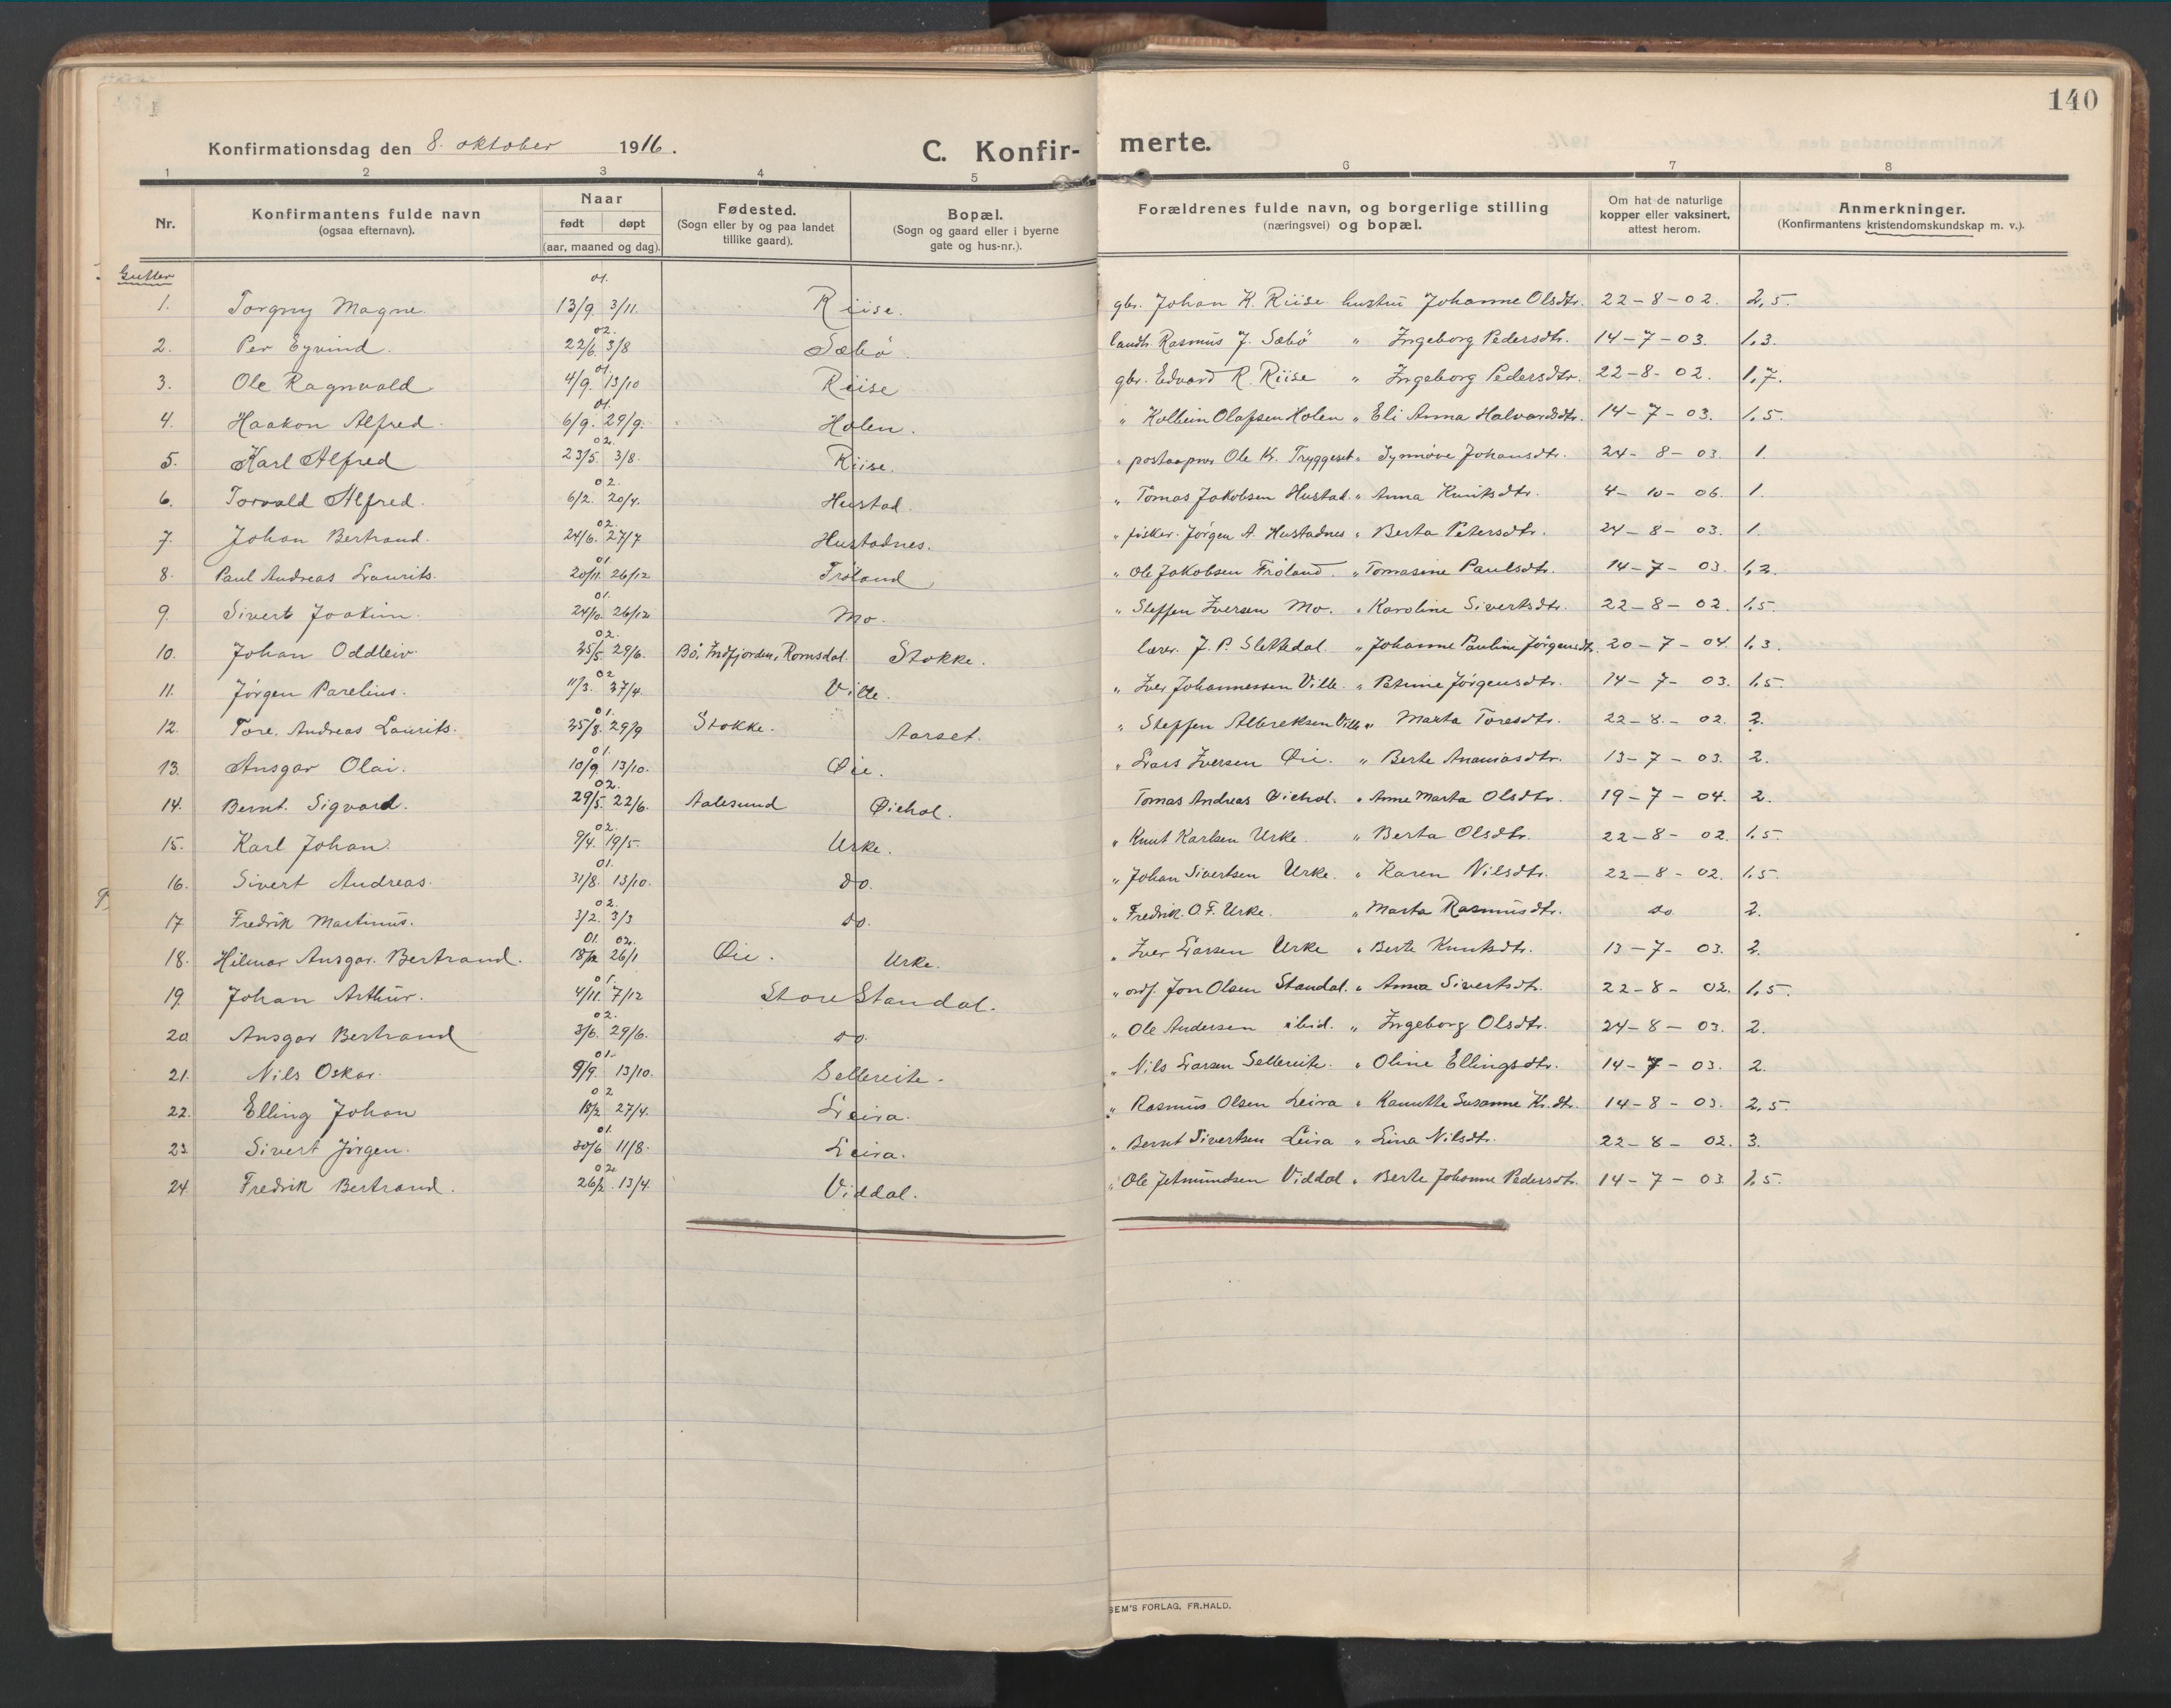 140
Konfirmationsdag den 8. oktober 1916. C. Konfir- merte.
1 2 3 4 5 6 7 8
Nr. Konfirmantens fulde navn (ogsaa efternavn). Naar født døpt (aar, maaned og dag). Fødested. (Sogn eller by og paa landet tillike gaard). Bopæl. (Sogn og gaard eller i byerne gate og hus-nr.). Forældrenes fulde navn, og borgerlige stilling (næringsvei) og bopæl. Om hat de naturlige kopper eller vaksinert, attest herom. Anmerkninger. (Konfirmantens kristendomskundskap m. v.).
Gutter
1. Torgny Magne. 01. 13/9. 3/11. Riise. gbr. Johan K. Riise hustru Johanne Olsdtr. 22-8-02. 2,5.
2. Per Eyvind. 02. 22/6. 3/8 Sæbø. landh. Rasmus J. Sæbø " Ingeborg Pedersdtr. 14-7-03. 1,3.
3. Ole Ragnvald 01. 4/9. 13/10 Riise gbr. Edvard R. Riise " Ingeborg Pedersdtr. 22-8-02. 1,7.
4. Haakon Alfred. 01. 6/9. 29/9. Holen. " Kolbein Olafsen Holen " Eli Anna Halvardsdtr. 14-7-03. 1,5.
5. Karl Alfred 02. 23/5. 3/8. Riise. " postaapner Ole Kr. Tryggeset " Synnøve Johansdtr. 24-8-03. 1.
6. Torvald Alfred. 02. 6/2. 20/4. Hustad. " Tomas Jakobsen Hustad. " Anna Knutsdtr. 4-10-06. 1.
7. Johan Bertrand. 02. 24/6. 27/7 Hustadnes. " fisker. Jørgen A. Hustadnes " Berta Petersdtr. 24-8-03. 1.
8. Paul Andreas Laurits. 01. 20/11. 26/12 Frøland " Ole Jakobsen Frøland. " Tomasine Paulsdtr. 14-7-03. 1,2.
9. Sivert Joakim. 01. 24/10. 26/12 Mo. " Steffen Iversen Mo. " Karoline Sivertsdtr. 22-8-02. 1,5.
10. Johan Oddleiv. 02. 25/5 29/6. Bø, Indfjorden, Romsdal. Stokke. lærer. J. P. Slettedal. " Johanne Pauline Jørgensdtr. 20-7-04. 1,3.
11. Jørgen Parelius. 02 11/3. 27/4. Ville. " Iver Johannessen Ville. " Petrine Jørgensdtr. 14-7-03. 1,5.
12. Tore. Andreas Laurits. 01. 25/8. 29/9 Stokke. Aarset. " Steffen Albreksen Ville " Marta Toresdtr. 22-8-02. 2.
13. Ansgar Olai. 01. 10/9. 13/10. Øie. " Lars Iversen Øie. " Berte Ananiasdtr. 13-7-03. 2.
14. Bernt. Sigvard. 02. 29/5. 22/6. Aalesund Øiehol. Tomas Andreas Øiehol. " Anne Marta Olsdtr. 19-7-04. 2.
15. Karl Johan. 02. 9/4. 19/5. Urke. " Knut Karlsen Urke. " Berta Olsdtr. 22-8-02. 1,5.
16. Sivert Andreas. 01. 31/8. 13/10. do. " Johan Sivertsen Urke. " Karen Nilsdtr. 22-8-02. 1,5.
17 Fredrik Martinus. 02. 3/2. 3/3 do. " Fredrik. O. F. Urke. " Marta Rasmusdtr. do 2.
18. Hilmar Ansgar. Bertrand. 01. 02. 18/12 26/1 Øie. Urke. " Iver Larsen Urke " Berte Knutsdtr. 13-7-03. 2.
19. Johan Arthur. 01. 4/11. 7/12 Store Standal. " ordf. Jon Olsen Standal. " Anna Sivertsdtr. 22-8-02. 1,5.
20 Ansgar Bertrand 02. 3/6. 29/6. do. " Ole Andersen ibid. " Ingeborg Olsdtr. 24-8-03. 2.
21. Nils Oskar. 01. 9/9. 13/10. Sellereite. " Nils Larsen Sellereite. " Oline Ellingsdtr. 14-7-03. 2.
22. Elling Johan 02 18/2 27/4. Leira. " Rasmus Olsen Leira " Kanutte Susanne Kr. dtr. 14-8-03. 2,5.
23. Sivert Jørgen. 01. 30/6 11/8. Leira. " Bernt Sivertsen Leira " Lina Nilsdtr. 22-8-02. 3.
24. Fredrik Bertrand. 02 26/2. 13/4. Viddal. " Ole Jetmundsen Viddal " Berte Johanne Pedersdtr. 14-7-03. 1,5.
SEM'S FORLAG. FR. HALD.